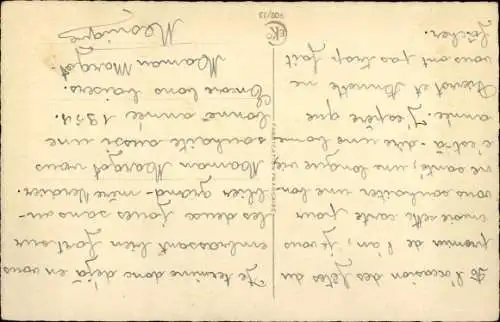 A l'occasion des fêtes du
premier de l'an, je vous
envoie cette carte pour
vous souhaiter une bon-
ne santé, une longue vie
c'est-à-dire une bonne
année. J'espère que
et Annette ne
vous ont pas trop fait
fâcher.
Je termine donc déjà en vous
embrassant bien fort sur
les deux joues sans ou-
blier grand-mère Verdier.
Maman Margot vous
souhaite aussi une
bonne année 1954.
Encore bons baisers.
Maman Margot.
Monique